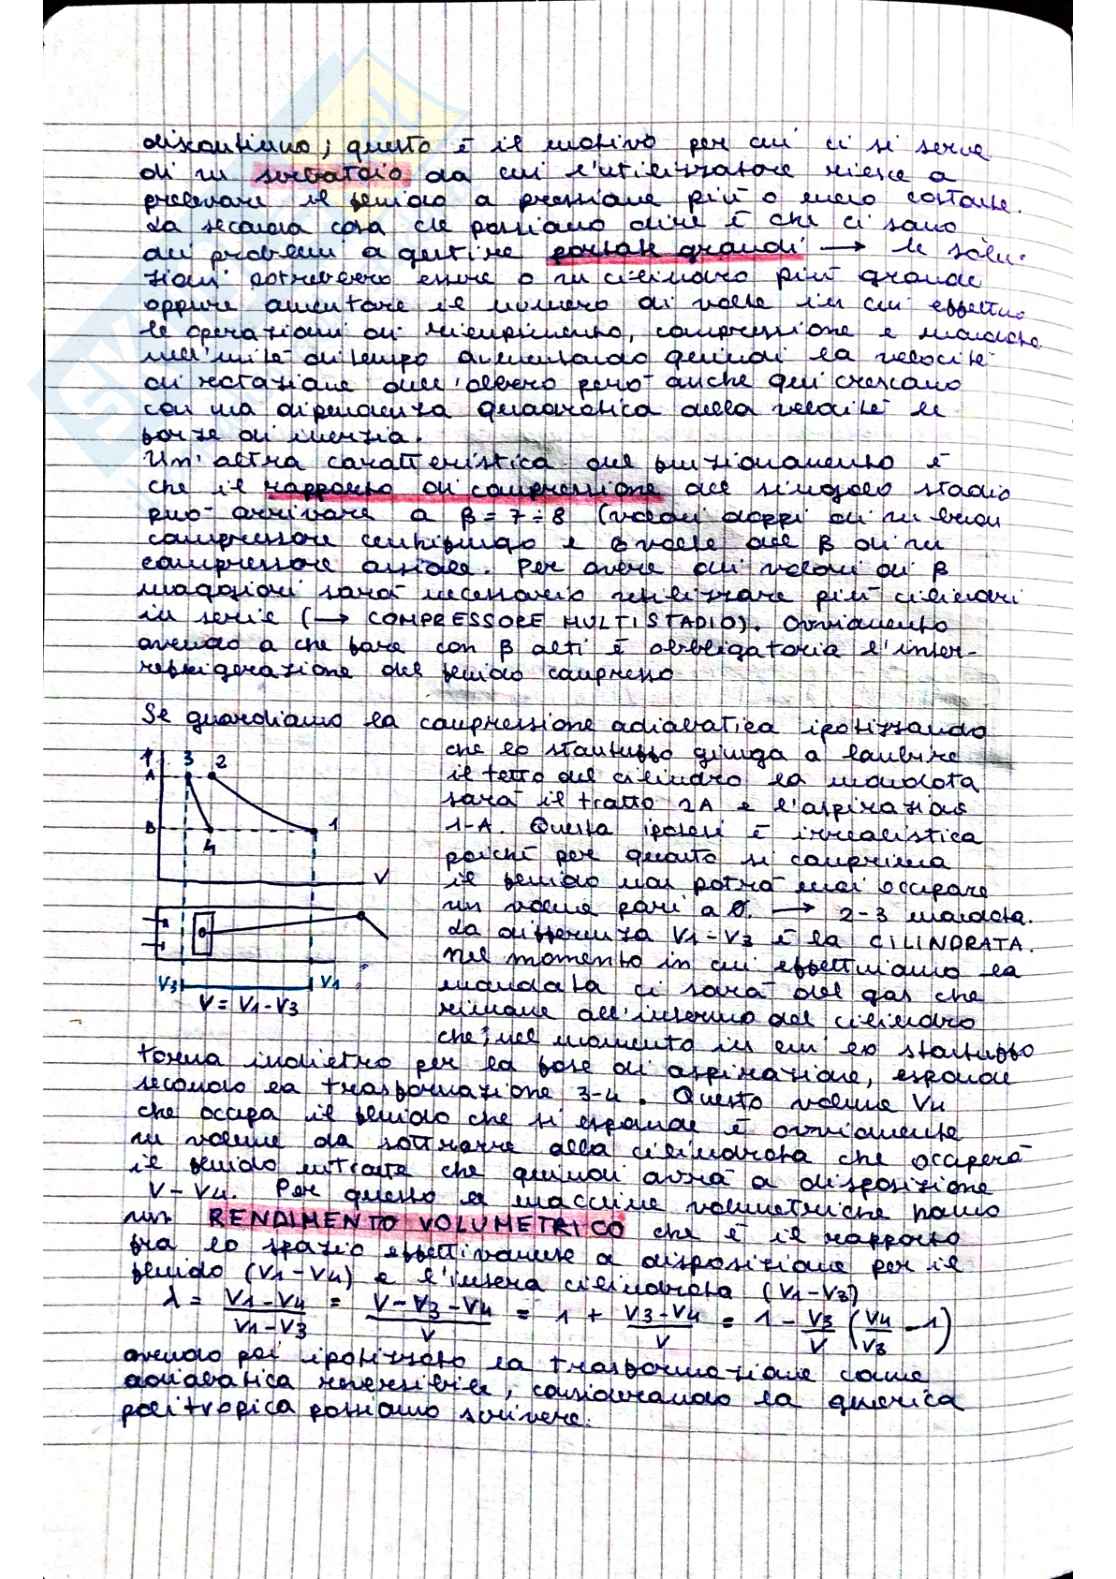 discontinuo; questo è il motivo per cui ci si serve
di un serbatoio da cui l'utilizzatore riesce a
prelevare il fluido a pressione più o meno costante.
La seconda cosa che possiamo dire è che ci sono
dei problemi a gestire portate grandi → le solu-
zioni potrebbero essere o un cilindro più grande
oppure aumentare il numero di volte in cui effettuo
le operazioni di riempimento, compressione e mandata
nell'unità di tempo aumentando quindi la velocità
di rotazione dell'albero però anche qui crescono
con una dipendenza quadratica della velocità le
forze di inerzia.
Un'altra caratteristica del funzionamento è
che il rapporto di compressione del singolo stadio
può arrivare a β = 7÷8 (valori doppi di un buon
compressore centrifugo e 6 volte del β di un
compressore assiale. Per avere dei valori di β
maggiori sarà necessario utilizzare più cilindri
in serie (→ COMPRESSORE MULTISTADIO). Ovviamente
avendo a che fare con β alti è obbligatoria l'inter-
refrigerazione del fluido compresso
Se guardiamo la compressione adiabatica ipotizzando
che lo stantuffo giunga a lambire
il tetto del cilindro la mandata
sarà il tratto 2A e l'aspirazione
1-A. Questa ipotesi è irrealistica
poiché per quanto si comprima
il fluido non potrà mai occupare
un volume pari a 0. → 2-3 mandata.
La differenza V1-V3 è la CILINDRATA.
Nel momento in cui effettuiamo la
mandata ci sarà del gas che
rimane all'interno del cilindro
che, nel momento in cui lo stantuffo
3 2
A
B
1
4
V
V3 V1
V = V1-V3
torna indietro per la fase di aspirazione, espande
secondo la trasformazione 3-4. Questo volume V4
che occupa il fluido che si espande è ovviamente
un volume da sottrarre alla cilindrata che occuperà
il fluido entrante che quindi avrà a disposizione
V-V4. Per questo le macchine volumetriche hanno
un RENDIMENTO VOLUMETRICO che è il rapporto
fra lo spazio effettivamente a disposizione per il
fluido (V1-V4) e l'intera cilindrata (V1-V3)
λ = (V1-V4)/(V1-V3) = (V-V3-V4)/V = 1 + (V3-V4)/V = 1 - V3/V (V4/V3 - 1)
avendo poi ipotizzato la trasformazione come
adiabatica reversibile, considerando la generica
politropica possiamo scrivere: